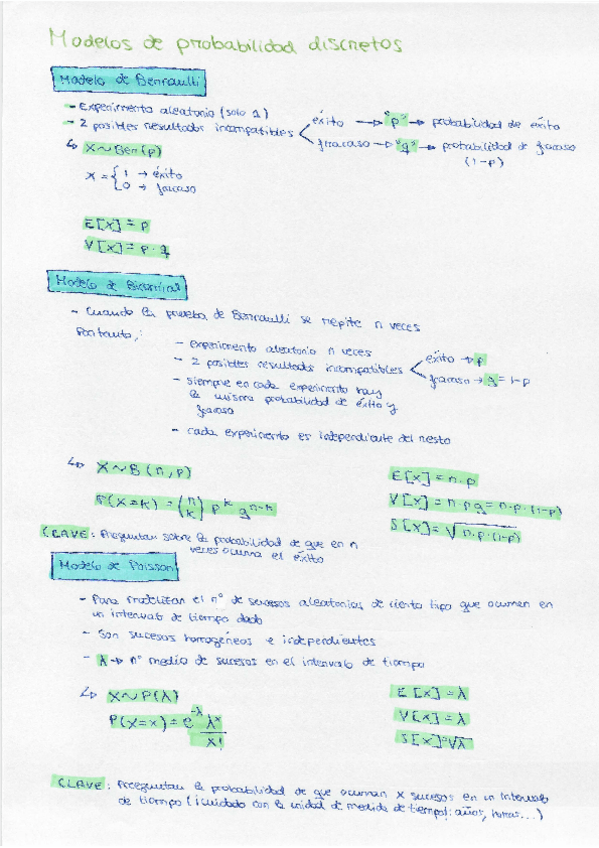 Modelos de probabilidad discretos
Modelo de Bernoulli
- Experimento aleatorio (solo 1)
- 2 posibles resultados incompatibles
éxito → "p" → probabilidad de éxito
fracaso → "q" → probabilidad de fracaso
(1-p)
↳ X ~ Ber(p)
X = { 1 → éxito
0 → fracaso
E[X] = p
V[X] = p · q
Modelo de Binomial
- Cuando la prueba de Bernoulli se repite n veces
Por tanto,:
- experimento aleatorio n veces
- 2 posibles resultados incompatibles
éxito → p
fracaso → q = 1-p
- siempre en cada experimento hay
la misma probabilidad de éxito y
fracaso
- cada experimento es independiente del resto
↳ X ~ B(n,p)
P(X=k) = (n k) p^k q^n-k
E[X] = n·p
V[X] = n·p·q = n·p·(1-p)
S[X] = √n·p·(1-p)
CLAVE: Preguntan sobre la probabilidad de que en n
veces ocurra el éxito
Modelo de Poisson
- Para modelizar el nº de sucesos aleatorios de cierto tipo que ocurren en
un intervalo de tiempo dado
- Son sucesos homogéneos e independientes
- λ → nº medio de sucesos en el intervalo de tiempo
↳ X ~ P(λ)
P(X=x) = e^-λ λ^x / x!
E[X] = λ
V[X] = λ
S[X] = √λ
CLAVE: Preeguntan la probabilidad de que ocurran x sucesos en un intervalo
de tiempo (¡cuidado con la unidad de medida de tiempo!: años, horas...)